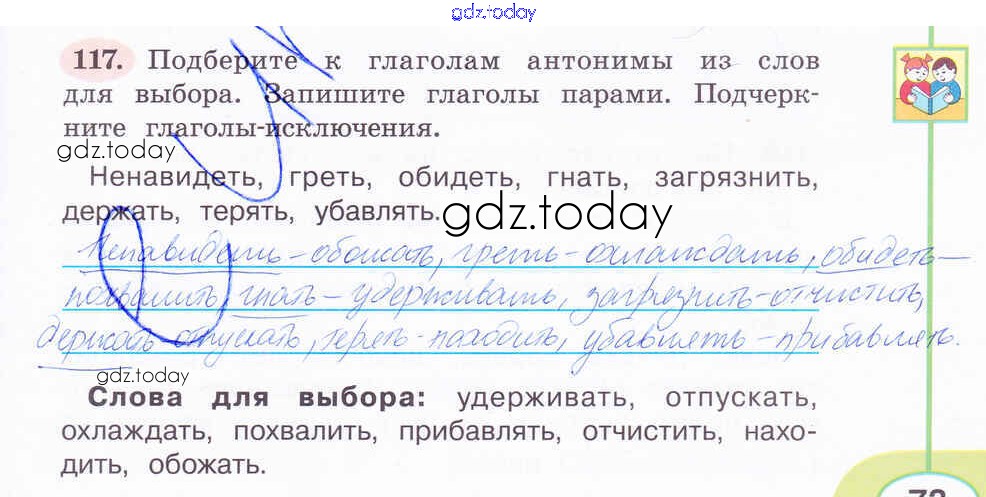 gdz.today
117. Подберите к глаголам антонимы из слов
для выбора. Запишите глаголы парами. Подчерк-
ните глаголы-исключения.
gdz.today
Ненавидеть, греть, обидеть, гнать, загрязнить,
держать, терять, убавлять.
gdz.today
Ненавидеть - обожать, греть - охлаждать, обидеть —
похвалить, гнать - удерживать, загрязнить - отчистить,
держать отпускать, терять - находить, убавлять - прибавлять.
gdz.today
Слова для выбора: удерживать, отпускать,
охлаждать, похвалить, прибавлять, отчистить, нахо-
дить, обожать.